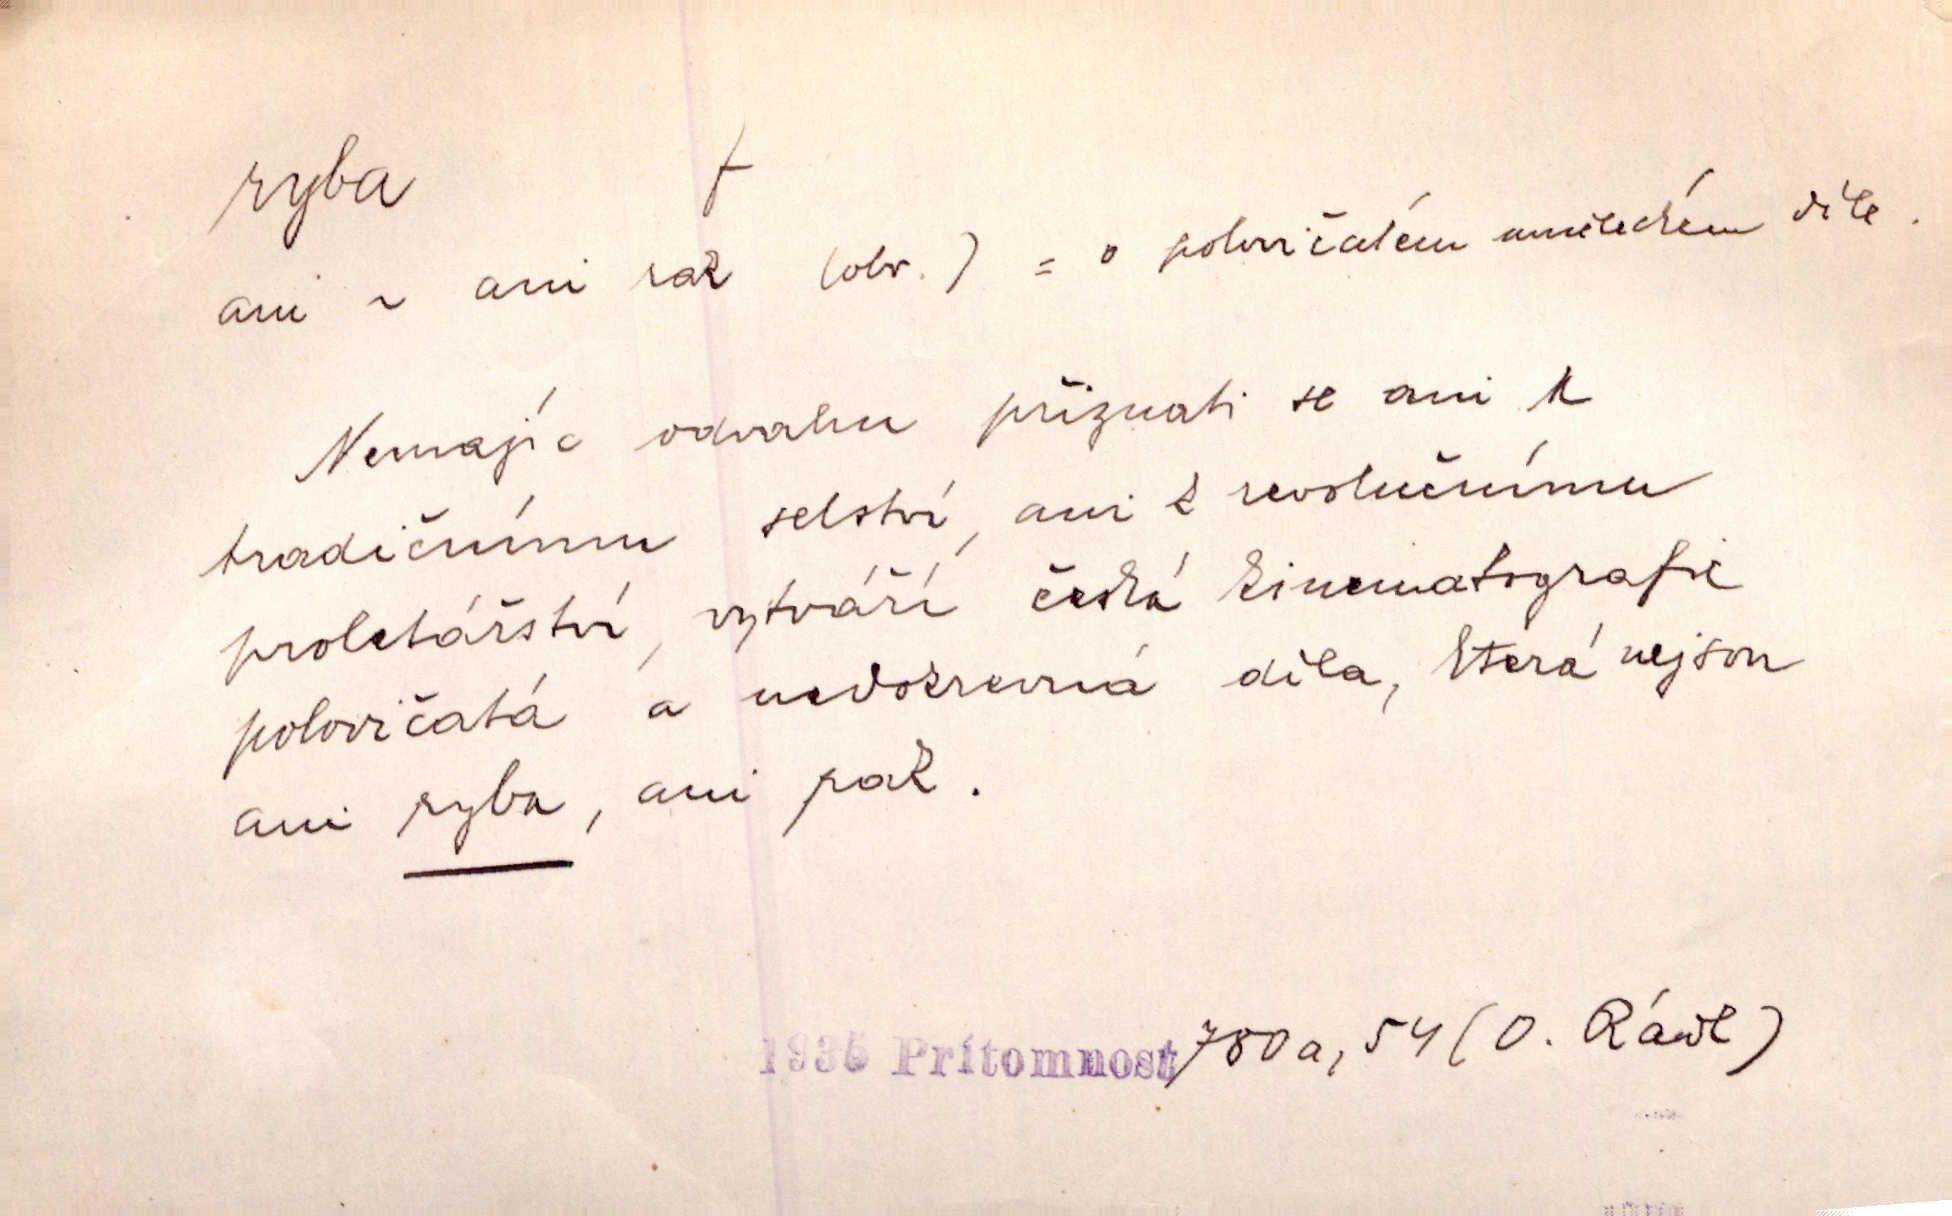 ryba +
ani ~ ani rak (obr.) = o polovičatém uměleckém díle.
Nemajíc odvahu přiznati se ani k
tradičnímu selství, ani k revolučnímu
proletářství, vytváří česká kinematografie
polovičatá a nedokrevná díla, která nejsou
ani ryba, ani rak.
1935 Prítomnost 780a, 54 (O. Rádl)